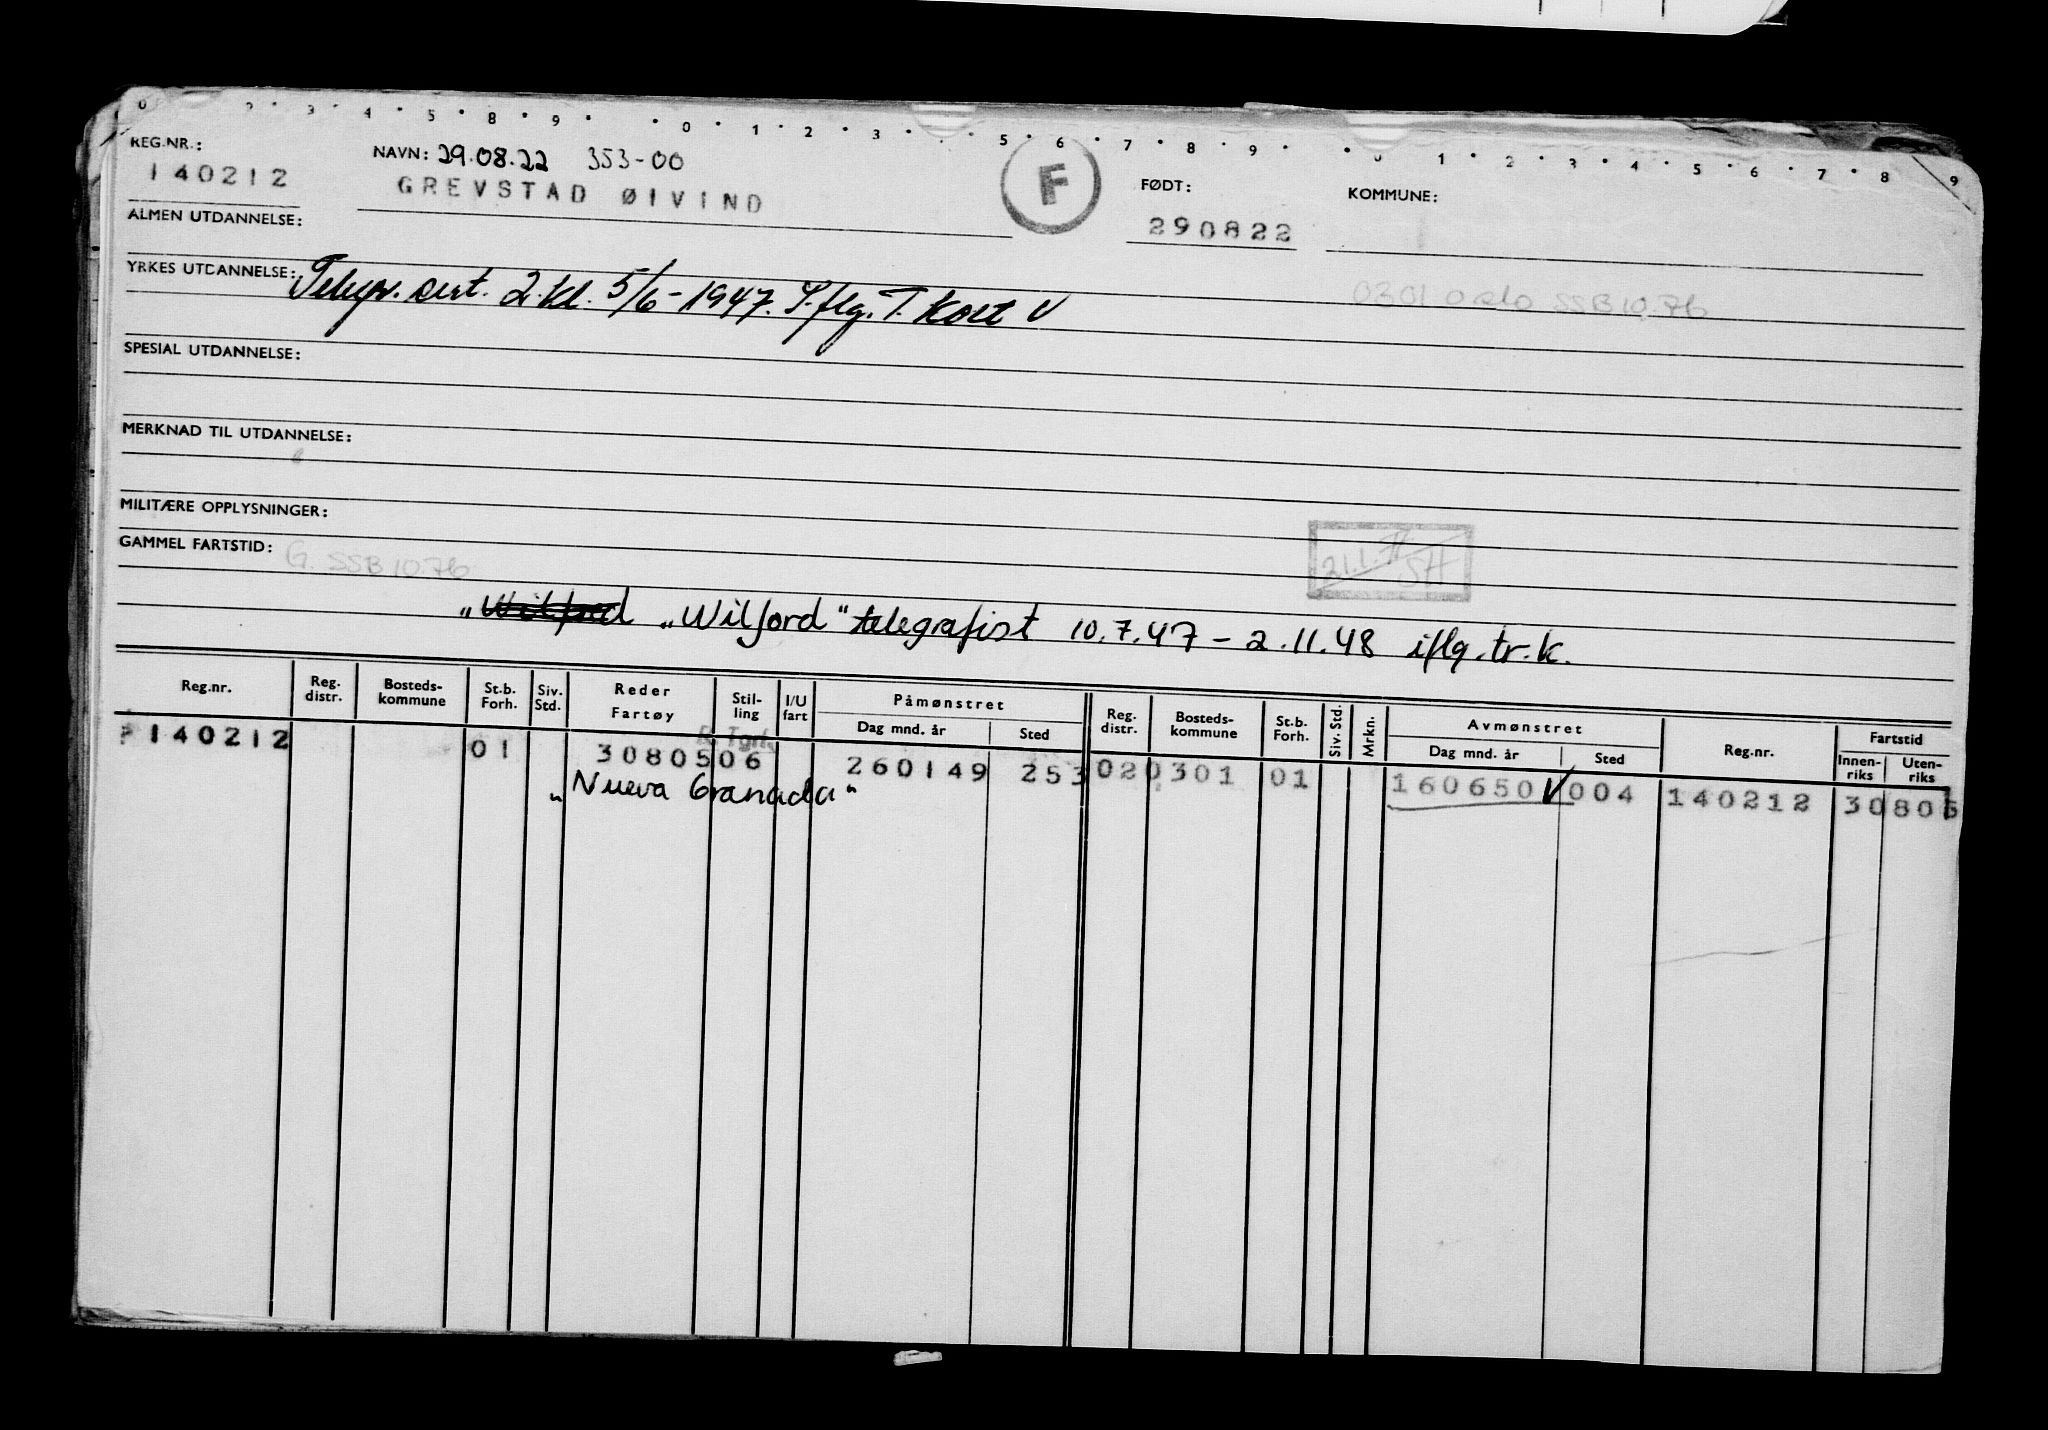 0 2 · 3 · 4 · 5 · 8 · 9 · · 0 · 1 · 2 · 3 · · 5 · 6 · 7 · 8 · 9 · · 0 · 1 · 2 · 3 · 4 · 5 · 6 · 7 · 8 9
REG.NR.: NAVN: 29.08.22 353-00 F FØDT: KOMMUNE:
140212 GREVSTAD ØIVIND 290822
ALMEN UTDANNELSE:
YRKES UTDANNELSE: Telegr. sert. 2.kl. 5/6-1947. I.flg. T. Kort V 0301 Oslo SSB 10.76
SPESIAL UTDANNELSE:
MERKNAD TIL UTDANNELSE:
MILITÆRE OPPLYSNINGER:
GAMMEL FARTSTID: G. SSB 10.76 21.1.77 SH
„Wilford „Wilford" telegrafist 10.7.47 – 2.11.48 iflg. tr. k.
Reg.nr. Reg. distr. Bosteds-kommune St.b. Forh. Siv. Std. Reder Fartøy Stil-ling I/U fart Påmønstret Dag mnd. år Sted Reg. distr. Bosteds-kommune St.b. Forh. Siv. Std. Mrkn. Avmønstret Dag mnd. år Sted Reg.nr. Fartstid Innen-riks Uten-riks
140212 01 3080506 260149 253 020301 01 160650 V 004 140212 30805
„Nueva Granada"